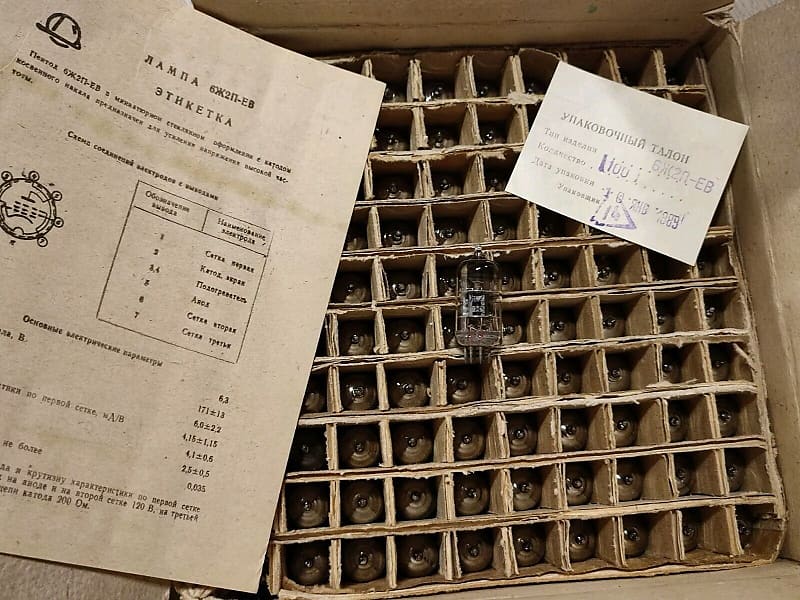 ЛАМПА 6Ж2П-ЕВ
ЭТИКЕТКА
Пентод 6Ж2П-ЕВ в миниатюрном стеклянном оформлении с катодом
косвенного накала предназначен для усиления напряжения высокой час-
тоты.
Схема соединений электродов с выводами
Обозначение вывода
Наименование электрода
1 Сетка первая
2 Катод, экран
3,4 Подогреватель
5 Анод
6 Сетка вторая
7 Сетка третья
Основные электрические параметры
В
6,3
по первой сетке, мА/В
171±13
6,0±2,2
4,15±1,15
4,1±0,6
не более
2,5±0,5
0,035
и крутизну характеристики по первой сетке
на аноде и на второй сетке 120 В, на третьей
катода 200 Ом.
УПАКОВОЧНЫЙ ТАЛОН
Тип изделия 6Ж2П-ЕВ
Количество 100
Дата упаковки ЯНВ 1989
Упаковщик 14